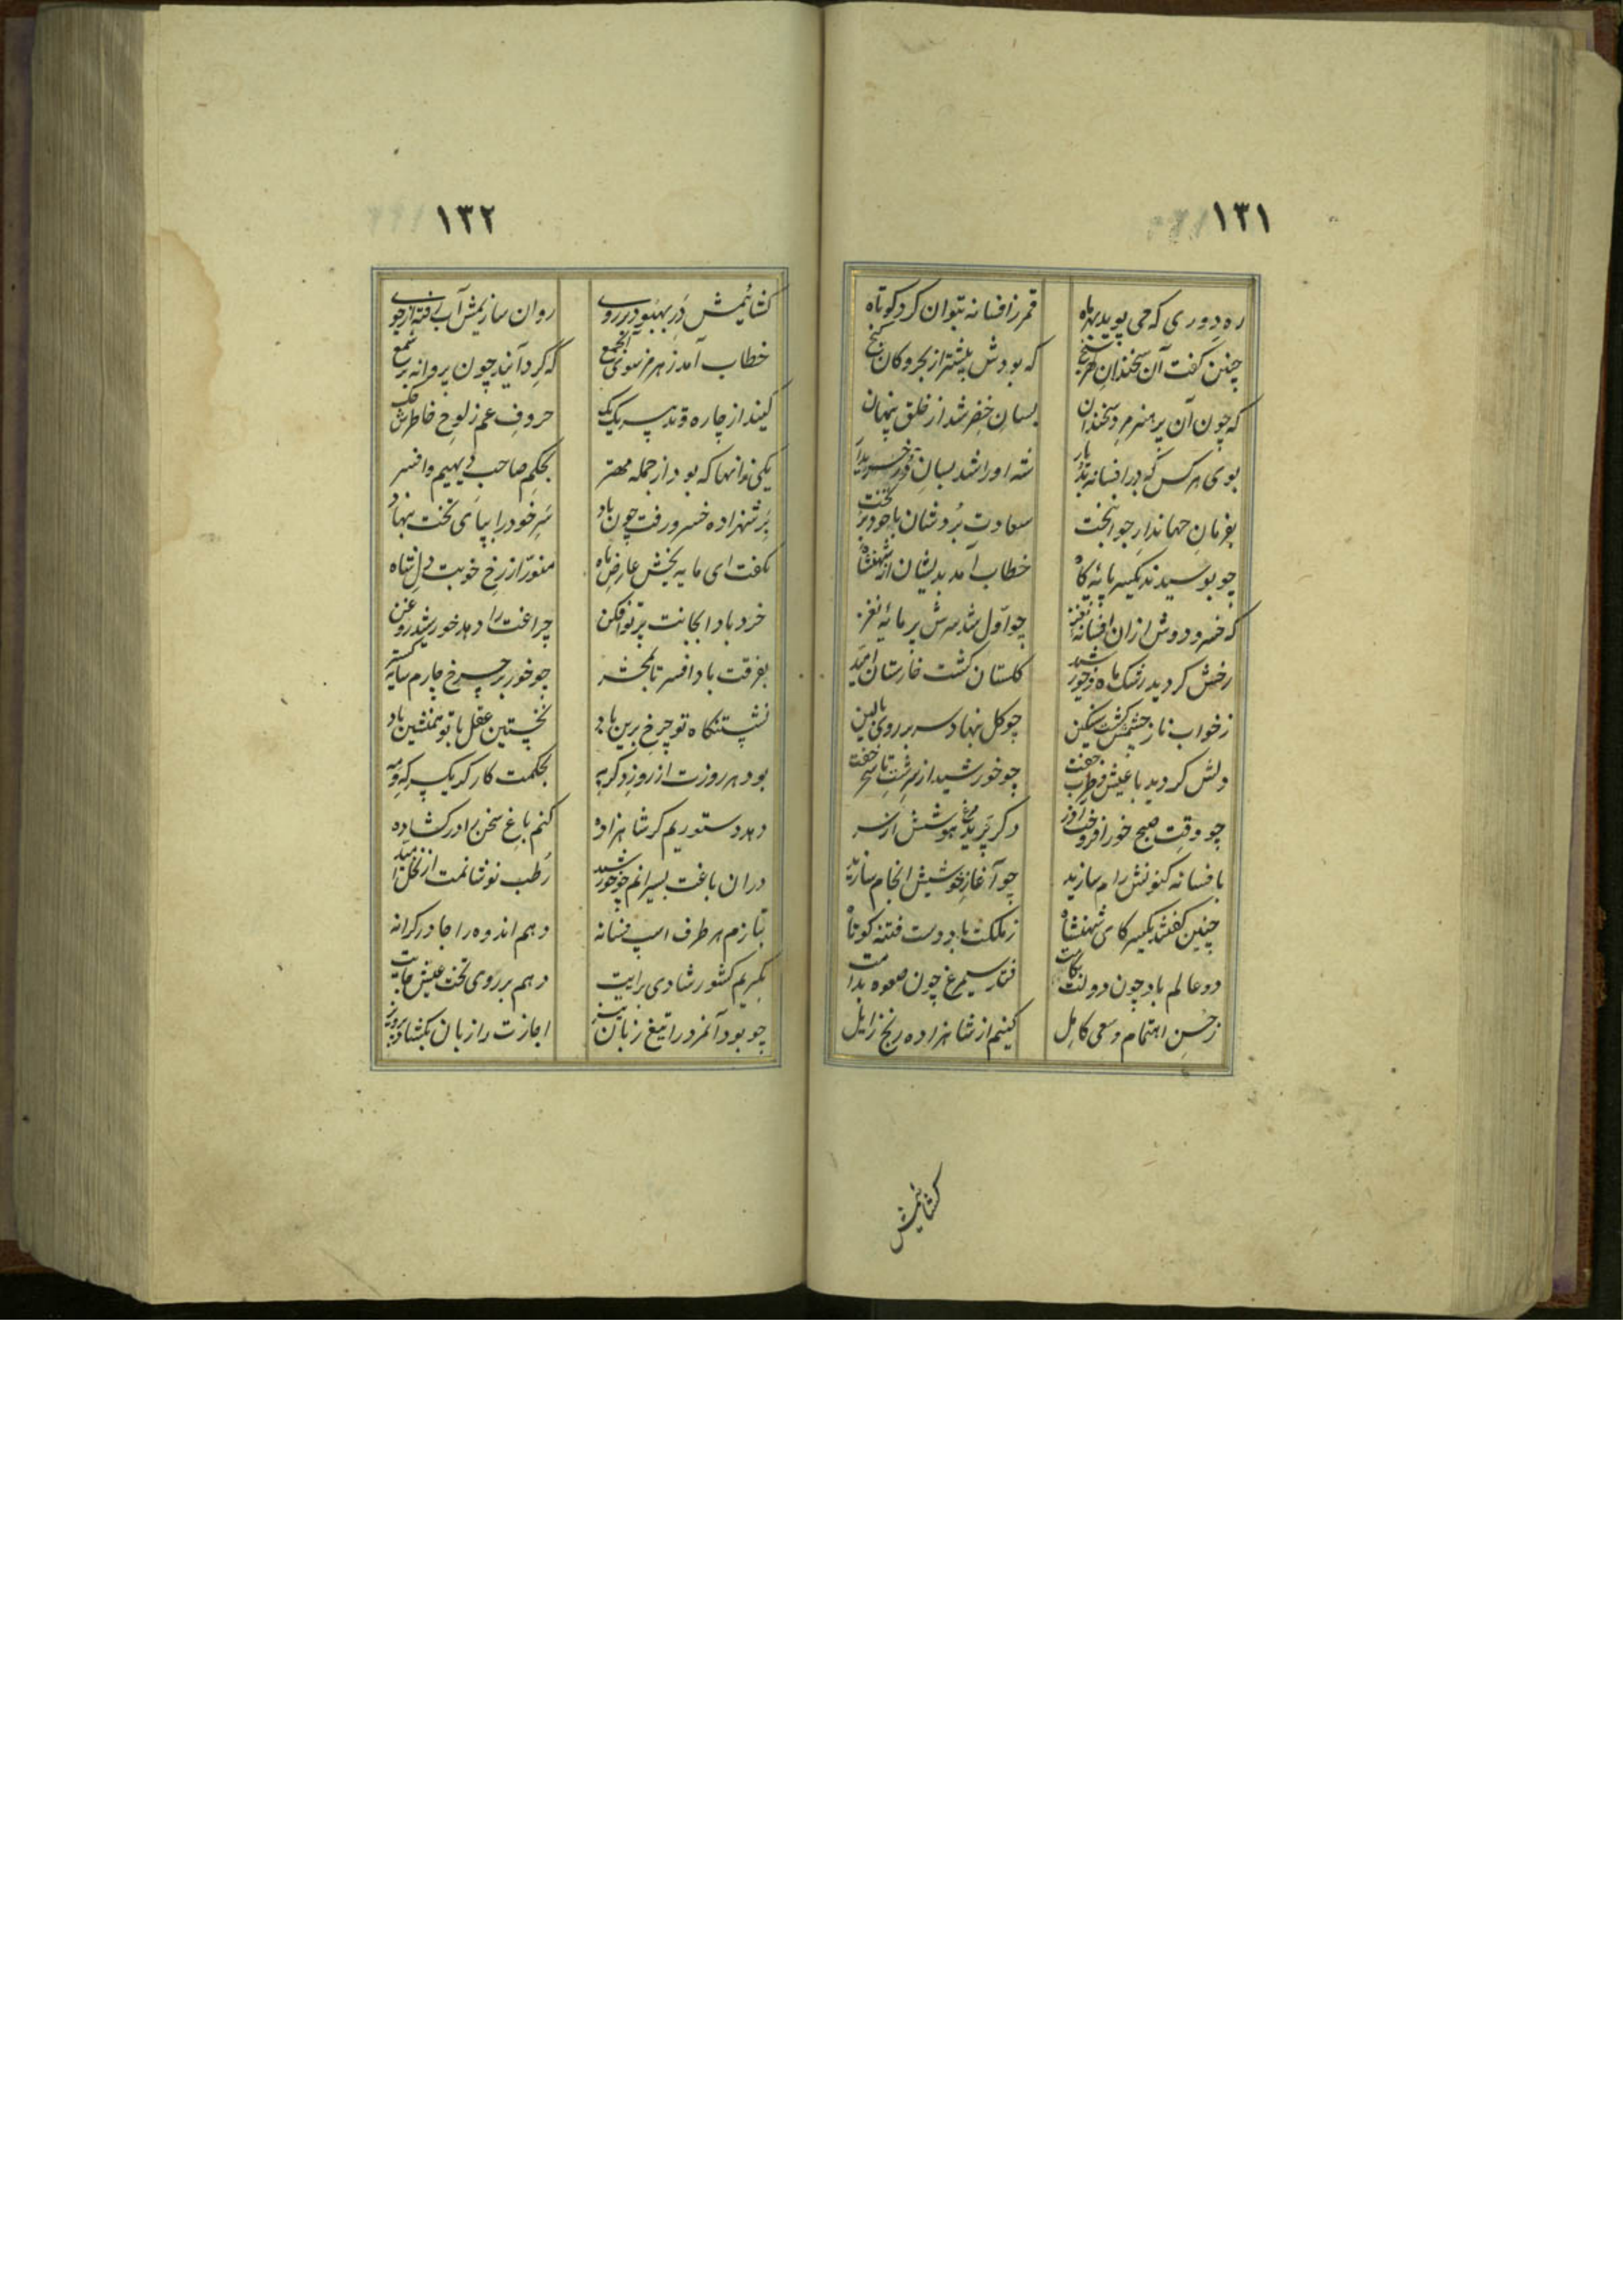 ۱۳۱
ره دوری که می پوید بهر ماه قمر ز افسانه بتوان کرد کوتاه
چنین گفت آن سخندان که بودش بیشتر از بحر و کان گنج
که چون آن پر هنر مرد سخندان بسان خضر شد از خلق پنهان
بوی هر کس که در افسانه شه او را شد بسان
بفرمان جهاندار جوانبخت سعادت بردشان با خود بر تخت
چو بوسیدند یکسر پایهٔ گاه خطاب آمد بدیشان از شهنشاه
که خسرو دوش از ان افسانه نغز چو اول شد سرش پر مایهٔ نغز
رخش کردید رشک ماه و خورشید گلستان گشت خارستان امید
ز خواب ناز چشمش گشت سنگین چو گل بنهاد سر بر روی بالین
دلش کردید با عیش و طرب جفت چو خورشید از سر شب تا سحر خفت
چو وقت صبح خور افروخت آذر دگر پرید مرغ هوشش از سر
بافسانه کنونش رام سازید چو آغاز خوشیش انجام سازید
چنین گفتند یکسر کای شهنشاه ز ملکت باد دست فتنه کوتاه
دو عالم باد چون دولت بکامت فتد سیمرغ چون صعوه بدامت
ز حسن اهتمام و سعی کامل کنیم از شاهزاده رنج زایل
کشائیمش
۱۳۲
کشائیمش در بهبود بر روی روان سازیمش آب رفته در جوی
خطاب آمد ز هرمز سوی آنجمع که گرد آیند چون پروانه بر شمع
کنند از چاره و تدبیر یک یک حروف غم ز لوح خاطرش حک
یکی زانها که بود از جمله مهتر بحکم صاحب دیهیم و افسر
بر شهزاده خسرو رفت چون باد سر خود را بپای تخت بنهاد
بگفت ای مایه بخش عارض ماه منور از رخ خوبت دل شاه
خرد بادا بجانت پرتو افکن چراغت را دهد خورشید روغن
بفرقت باد افسر تا بمحشر چو خور بر چرخ چارم سایه گستر
نشستنگاه تو چرخ برین باد نخستین عقل با تو همنشین باد
بود هر روزت از روز دگر به بحکمت کار که یکسر که و مه
دهد دستوریم گر شاهزاده کنم باغ سخن را در گشاده
دران باغت بسیرانم چو خورشید رطب نوشانمت از نخل امید
بتازم هر طرف اسپ فسانه دهم اندوه را جا در کرانه
بگیریم کشور شادی برایت دهم بر روی تخت عیش جایت
چو بود آنمرد را تیغ زبان تیز اجازت را زبان بگشاد پرویز